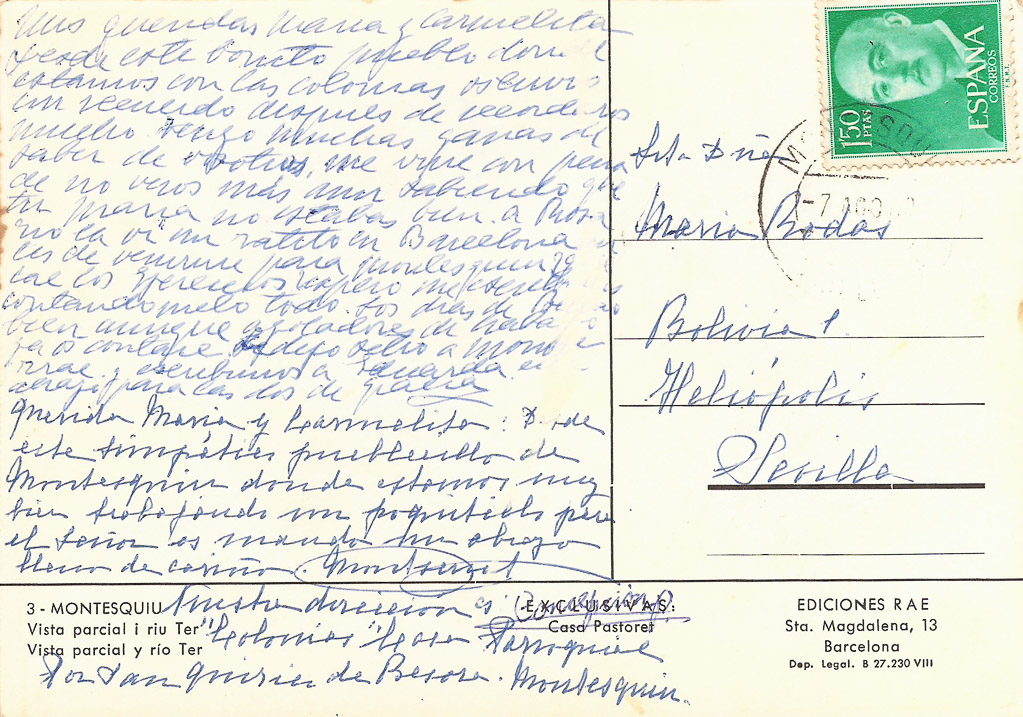 Mis queridas Maria y Carmelita
desde este bonito pueblo donde
estamos con las colonias os envio
un recuerdo despues de recordaros
mucho tengo muchas ganas de
saber de vosotras, me vine con pena
de no veros mas aun sabiendo que
tu Maria no estabas bien. a Rosa
no la vi un ratito en Barcelona
de venirme para Montesquiu
contandomelo todo. los dias
bien aunque agotadores de trabajo
a Eduarda
abrazo para las dos de Gracia
Querida Maria y Carmelita: Desde
este simpático pueblecillo de
Montesquiu donde estamos muy
bien trabajando un poquitielo por
el Señor os mando un abrazo
lleno de cariño. Montserrat
Nuestra dirección es Concepción, 9.
"Colonias" Casa Parroquial
Por San Quirico de Besora. Montesquiu.
ESPAÑA
CORREOS
1'50
PTAS
-7 AGO
Srta Dña
Maria Rodas
Bolivia 1.
Heliópolis
Sevilla
3 - MONTESQUIU
Vista parcial i riu Ter
Vista parcial y río Ter
EXCLUSIVAS:
Casa Pastoret
EDICIONES RAE
Sta. Magdalena, 13
Barcelona
Dep. Legal. B 27.230 VIII